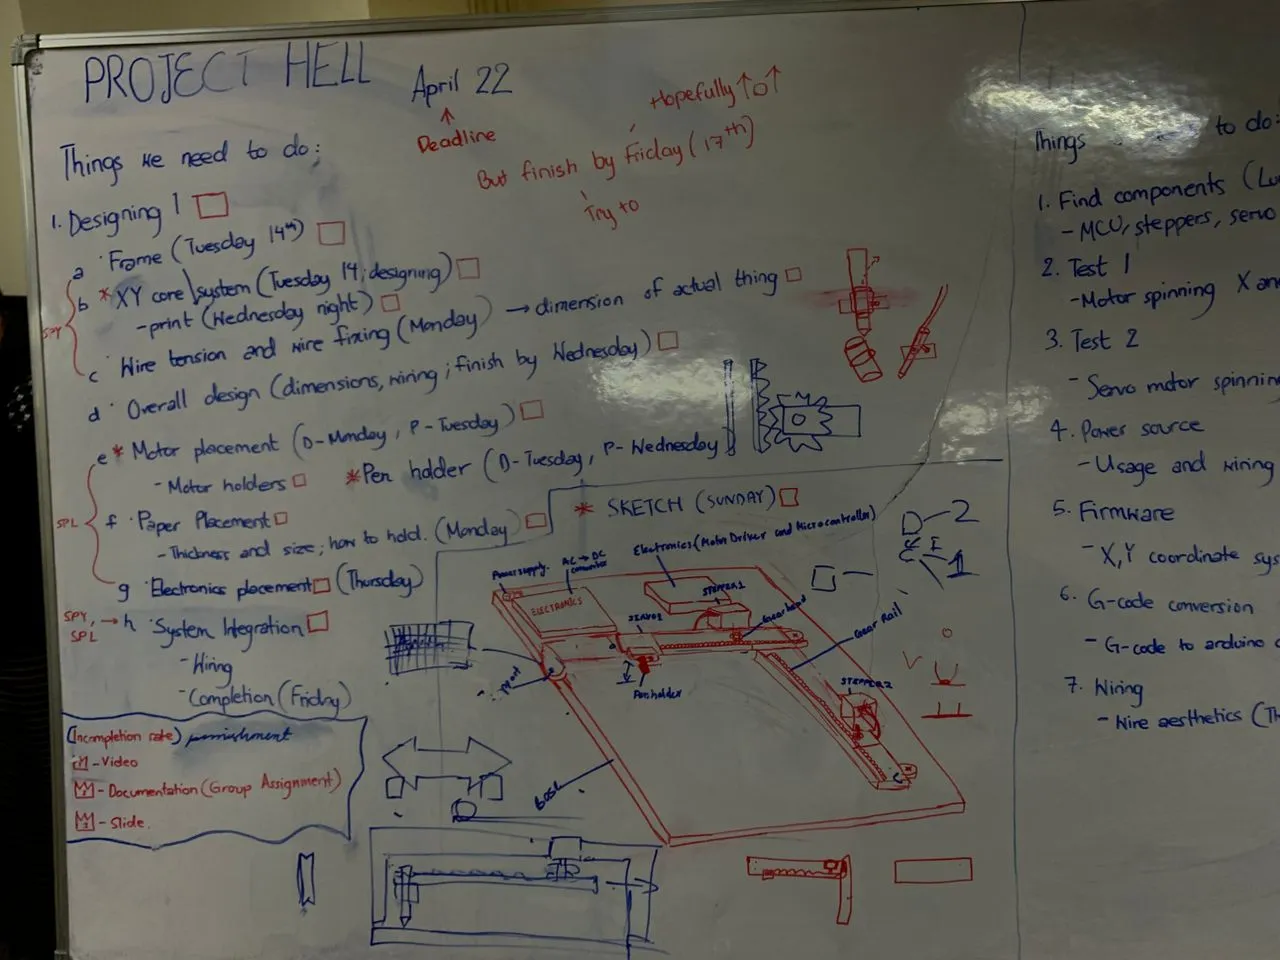 PROJECT HELL
April 22
Deadline
Hopefully
But finish by Friday (17th)
Try to
Things we need to do:
1. Designing 1
a Frame (Tuesday 14th)
b * XY core system (Tuesday 14, designing)
- print (Wednesday night)
c Wire tension and wire fixing (Monday) → dimension of actual thing
d Overall design (dimensions, wiring; finish by Wednesday)
SPY
e * Motor placement (D-Monday, P-Tuesday)
- Motor holders
* Pen holder (D-Tuesday, P-Wednesday)
f Paper Placement
- Thickness and size; how to hold. (Monday)
SPL
g Electronics placement (Thursday)
SPY, SPL → h System Integration
- Wiring
- Completion (Friday)
(Incompletion rate) punishment
- Video
- Documentation (Group Assignment)
- Slide.
* SKETCH (SUNDAY)
Power supply.
AC → DC
Electronics (Motor Driver and Microcontroller)
ELECTRONICS
STEPPER 1
SERVO 1
Gearhead
Gear Rail
Penholder
STEPPER 2
Base
M
D - 2
1
V
Things to do:
1. Find components
- MCU, steppers, servo
2. Test 1
- Motor spinning X
3. Test 2
- Servo motor spinning
4. Power source
- Usage and wiring
5. Firmware
- X, Y coordinate
6. G-code conversion
- G-code to arduino
7. Wiring
- Wire aesthetics